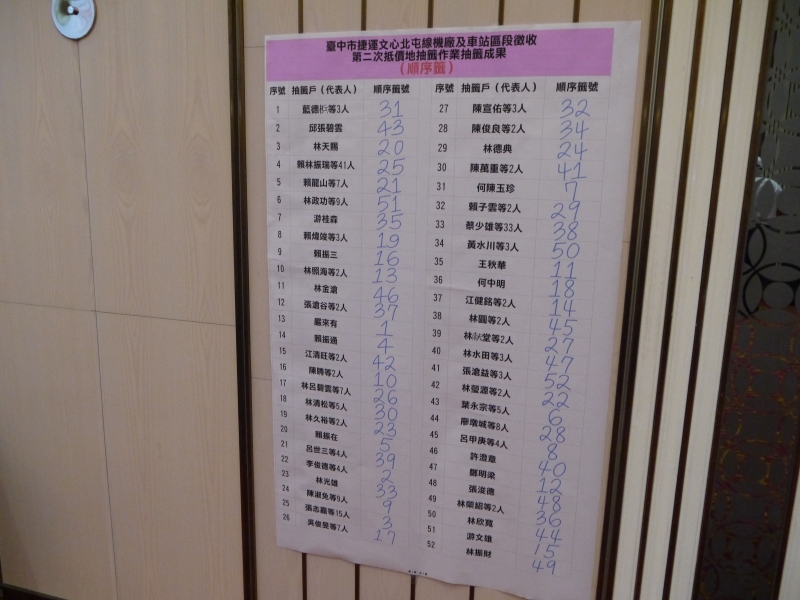 臺中市捷運文心北屯線機廠及車站區段徵收
第二次抵價地抽籤作業抽籤成果
(順序籤)
序號 抽籤戶(代表人) 順序籤號
1 藍德等3人 31
2 邱張碧雲 43
3 林天賜 20
4 賴林振瑞等41人 25
5 賴龍山等7人 21
6 林政功等9人 51
7 游桂森 35
8 賴煒竣等3人 19
9 賴振三 16
10 林照海等2人 13
11 林金滄 46
12 張滄谷等2人 37
13 嚴來有 1
14 賴振通 4
15 江清旺等2人 42
16 陳騁等2人 10
17 林呂碧雲等7人 26
18 林清松等5人 30
19 林久裕等2人 23
20 賴振在 5
21 呂世三等4人 39
22 李俊德等4人 2
23 林光雄 33
24 陳淑免等9人 9
25 張志嘉等15人 3
26 吳俊旻等7人 17
序號 抽籤戶(代表人) 順序籤號
27 陳宣佑等3人 32
28 陳俊良等2人 34
29 林德典 24
30 陳萬重等2人 41
31 何陳玉珍 7
32 賴子雲等2人 29
33 蔡少雄等33人 38
34 黃水川等3人 50
35 王秋華 11
36 何中明 18
37 江健銘等2人 14
38 林圓等2人 45
39 林堂等2人 27
40 林水田等3人 47
41 張滄益等3人 52
42 林瑩源等2人 22
43 葉永宗等5人 6
44 廖墩城等8人 28
45 呂甲庚等4人 8
46 許澄章 40
47 鄭明梁 12
48 張浚德 48
49 林榮紹等2人 36
50 林欣寬 44
51 游文雄 15
52 林振財 49